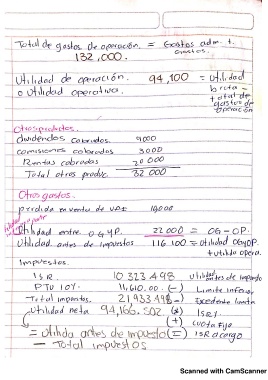 Total de gastos de operación. = Gastos adm. +
132,000.
Utilidad de operación. 94,100 = utilidad
o utilidad operativa. bruta -
total de
gastos de
operación
Otros productos.
dividendos cobrados. 9000
comisiones cobradas 3000
Rentas cobradas 20 000
Total otros produc 32 000
Otros gastos.
perdida en venta de
Utilidad entre O G y P. 22 000 = OG - OP.
Utilidad antes de impuestos 116 100 = Utilidad OGyOP.
+ utilid opera.
Impuestos.
ISR. 10 323.498 utilidad antes de impuesto
PTU 10%. 11,610.00 (-) Limite inferior
Total impuestos. 21 933.498 - Excedente limite
utilidad neta 94,166.502 (x) ISR %
(+) cuota fija
= utilida antes de impuesto (=) ISR a cargo
- Total impuestos
Scanned with CamScanner